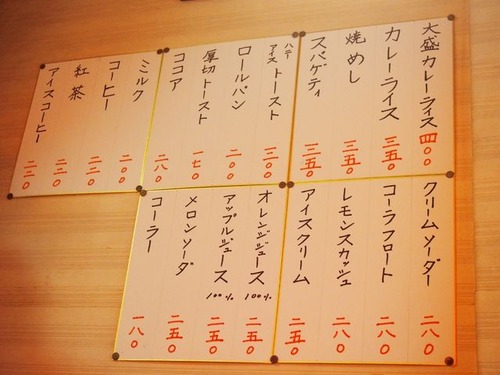 大盛カレーライス 四〇〇
カレーライス 三五〇
焼めし 三五〇
スパゲティ 三五〇
ハニーアイストースト 三〇〇
ロールパン 二〇〇
厚切トースト 一七〇
ココア 二八〇
ミルク 二〇〇
コーヒー 二三〇
紅茶 二三〇
アイスコーヒー 二三〇
クリームソーダー 二八〇
コーラフロート 二八〇
レモンスカッシュ 二八〇
アイスクリーム 二五〇
オレンジジュース 100% 二五〇
アップルジュース 100% 二五〇
メロンソーダ 二五〇
コーラー 一八〇